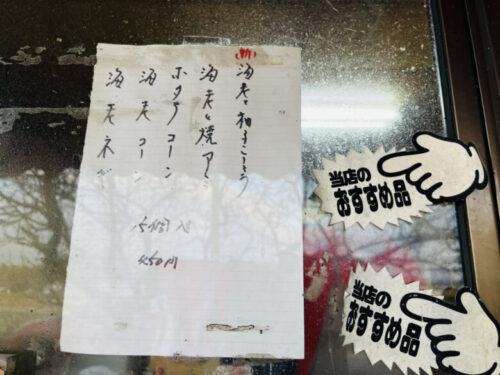 (新)
海老と柚子こしょう
海老と焼アミ
ホタテコーン
海老コーン
海老ネギ
15個入
450円
当店の
おすすめ品
当店の
おすすめ品